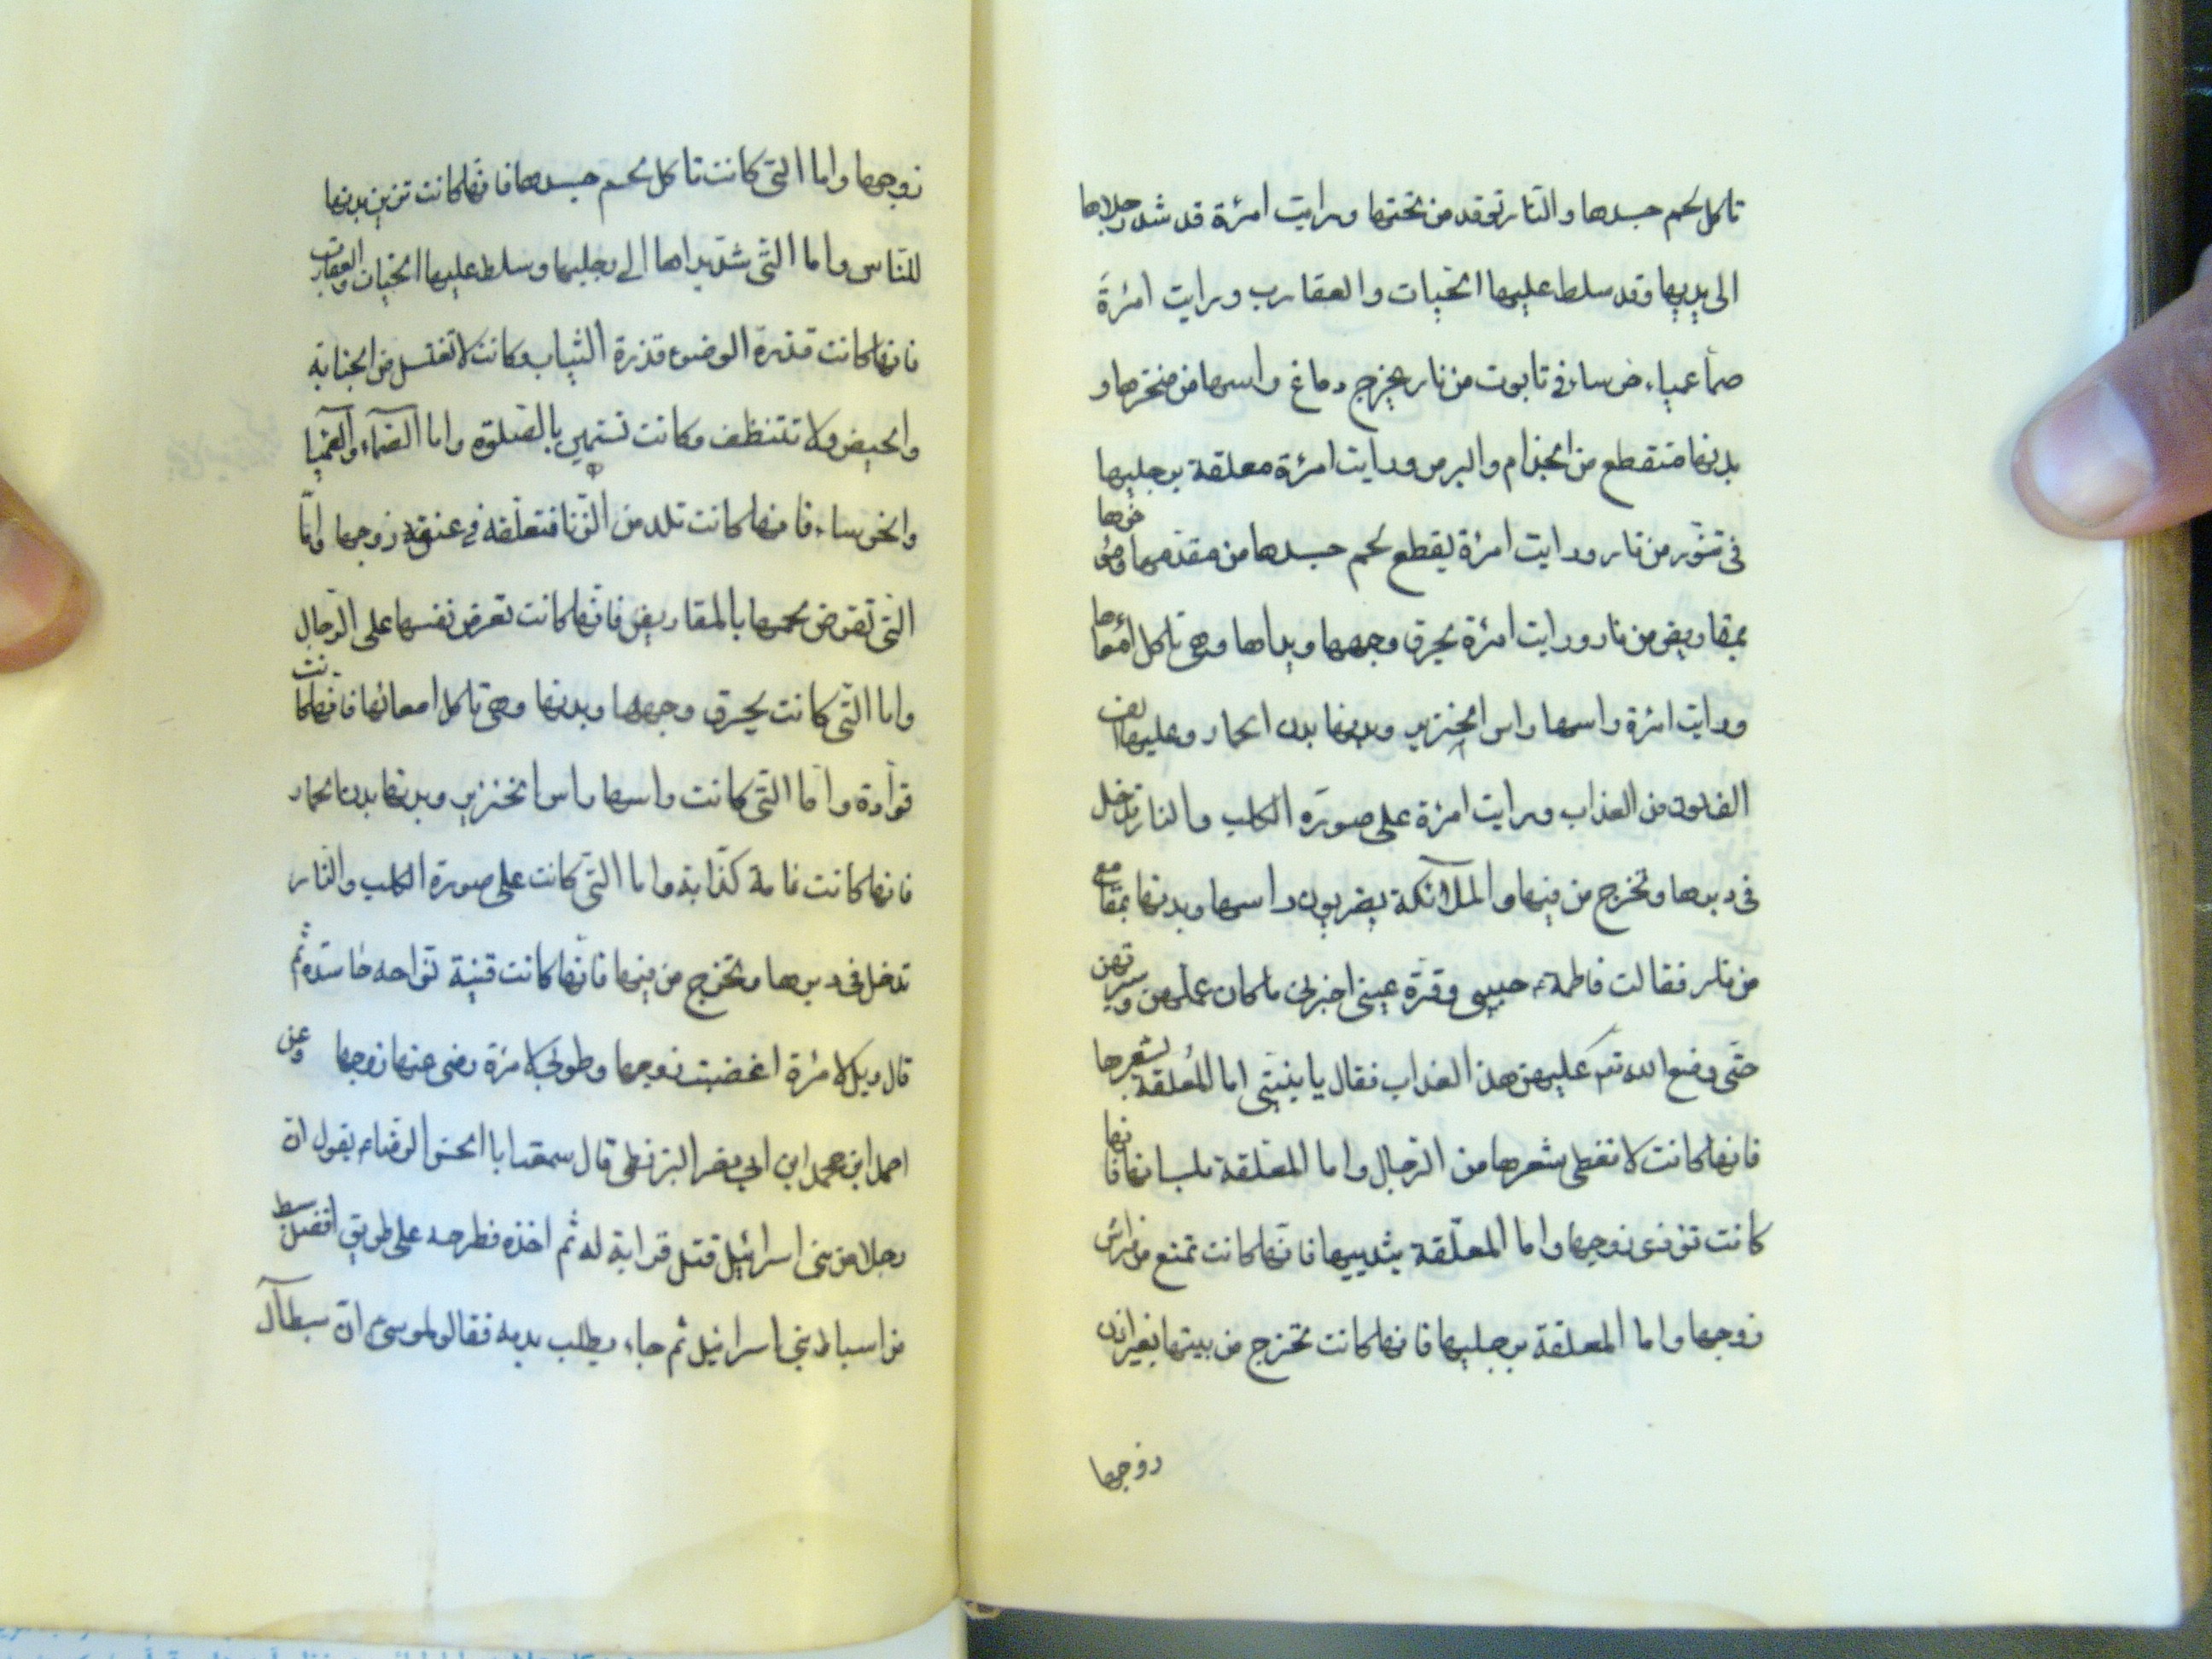 تاكل لحم جسدها والنار توقد من تحتها ورايت امرئة قد شد رجلاها
الى يديها وقد سلط عليها الحيات والعقارب ورايت امرئة
صمأ عمياء خرساء في تابوت من نار يخرج دماغ راسها من منخرها و
بدنها متقطع من الجذام والبرص ورايت امرئة معلقة برجليها
في تنور من نار ورايت امرئة يقطع لحم جسدها من مقدمها ومؤخرها
بمقاريض من نار ورايت امرئة يحرق وجهها ويداها وهي تاكل امعاءها
ورايت امرئة راسها راس الخنزير وبدنها بدن الحمار وعليها الف
الف لون من العذاب ورايت امرئة على صورة الكلب والنار تدخل
في دبرها وتخرج من فيها والملائكة يضربون راسها وبدنها بمقامع
من نار فقالت فاطمة ع حبيبي وقرة عيني اخبرني ما كان عملهن وسيرتهن
حتى وضع الله تم عليهن هذا العذاب فقال يا بنيتي اما المعلقة بشعرها
فانها كانت لا تغطى شعرها من الرجال واما المعلقة بلسانها فانها
كانت توذى زوجها واما المعلقة بثدييها فانها كانت تمتنع من فراش
زوجها واما المعلقة برجليها فانها كانت تخرج من بيتها بغير اذن
زوجها
زوجها واما التي كانت تاكل لحم جسدها فانها كانت تزين بدنها
للناس واما التي شد يداها الى رجليها وسلط عليها الحيات والعقارب
فانها كانت قذرة الوضوء قذرة الثياب وكانت لا تغتسل من الجنابه
والحيض ولا تتنظف وكانت تستهين بالصلوة واما الصماء والعميا
والخرساء فانها كانت تلد من الزنا فتعلقه في عنق زوجها واما
التي تقرض لحمها بالمقاريض فانها كانت تعرض نفسها على الرجال
واما التي كانت يحرق وجهها وبدنها وهي تاكل امعائها فانها كانت
قوادة واما التي كانت راسها راس الخنزير وبدنها بدن الحمار
فانها كانت نمامة كذابة واما التي كانت على صورة الكلب والنار
تدخل في دبرها وتخرج من فيها فانها كانت قنية نواحه حاسده ثم
قال ويل لامرئة اغضبت زوجها وطوبى لامرئة رضى عنها زوجها وعن
احمد ابن محمد ابن ابي نصر البزنطى قال سمعت ابا الحسن الرضاء يقول ان
رجلا من بنى اسرائيل قتل قرابة له ثم اخذه فطرحه على طريق افضل سبط
من اسباط بني اسرائيل ثم جاء يطلب بدمه فقالو لموسى ان سبط آل